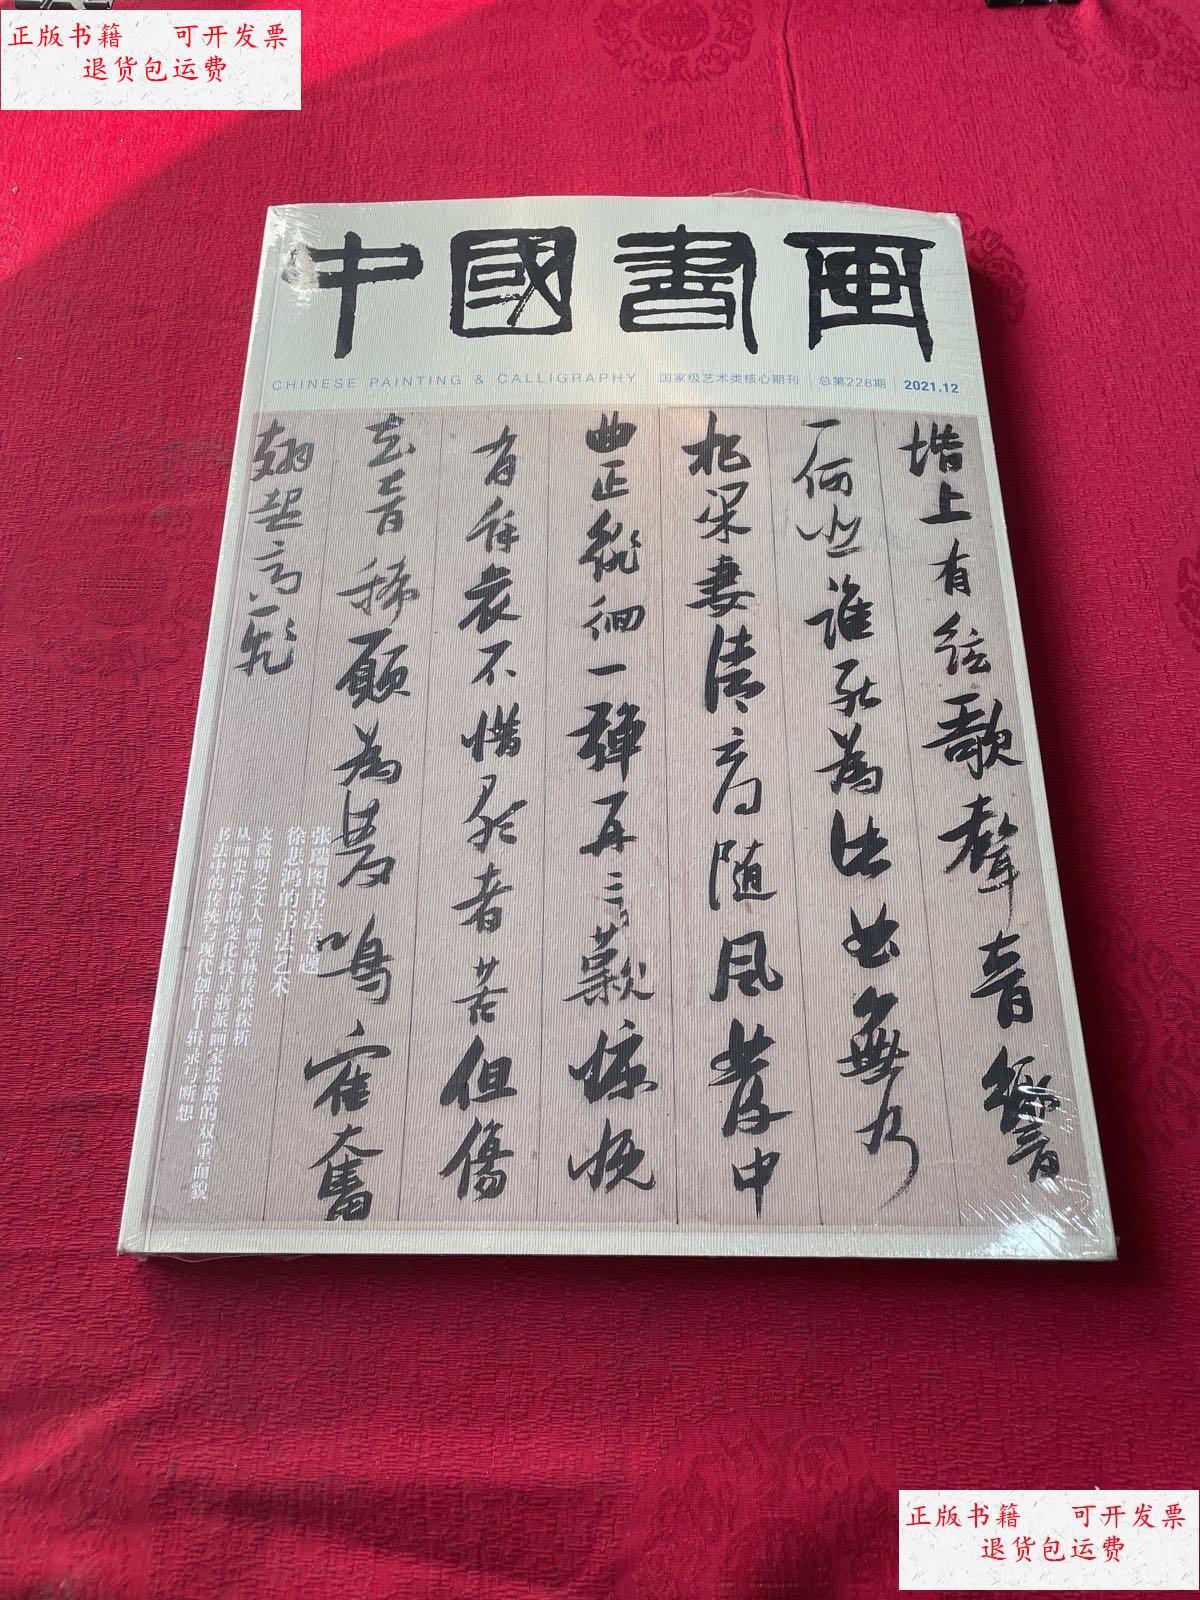 正版书籍 可开发票
退货包运费
中國書画
CHINESE PAINTING & CALLIGRAPHY 国家级艺术类核心期刊 总第228期 2021.12
堦上有絃歌聲音響
一何悲誰能為此曲無乃
杞梁妻清商随風發中
曲正徘徊一彈再三歎慷慨
有餘哀不惜歌者苦但傷
知音稀願為雙鳴鶴奮
翅起高飛
张瑞图书法专题
徐悲鸿的书法艺术
文徵明之文人画学脉传承探析
从画史评价的变化找寻浙派画家张路的双重面貌
书法中的传统与现代创作—辑录与断想
正版书籍 可开发票
退货包运费